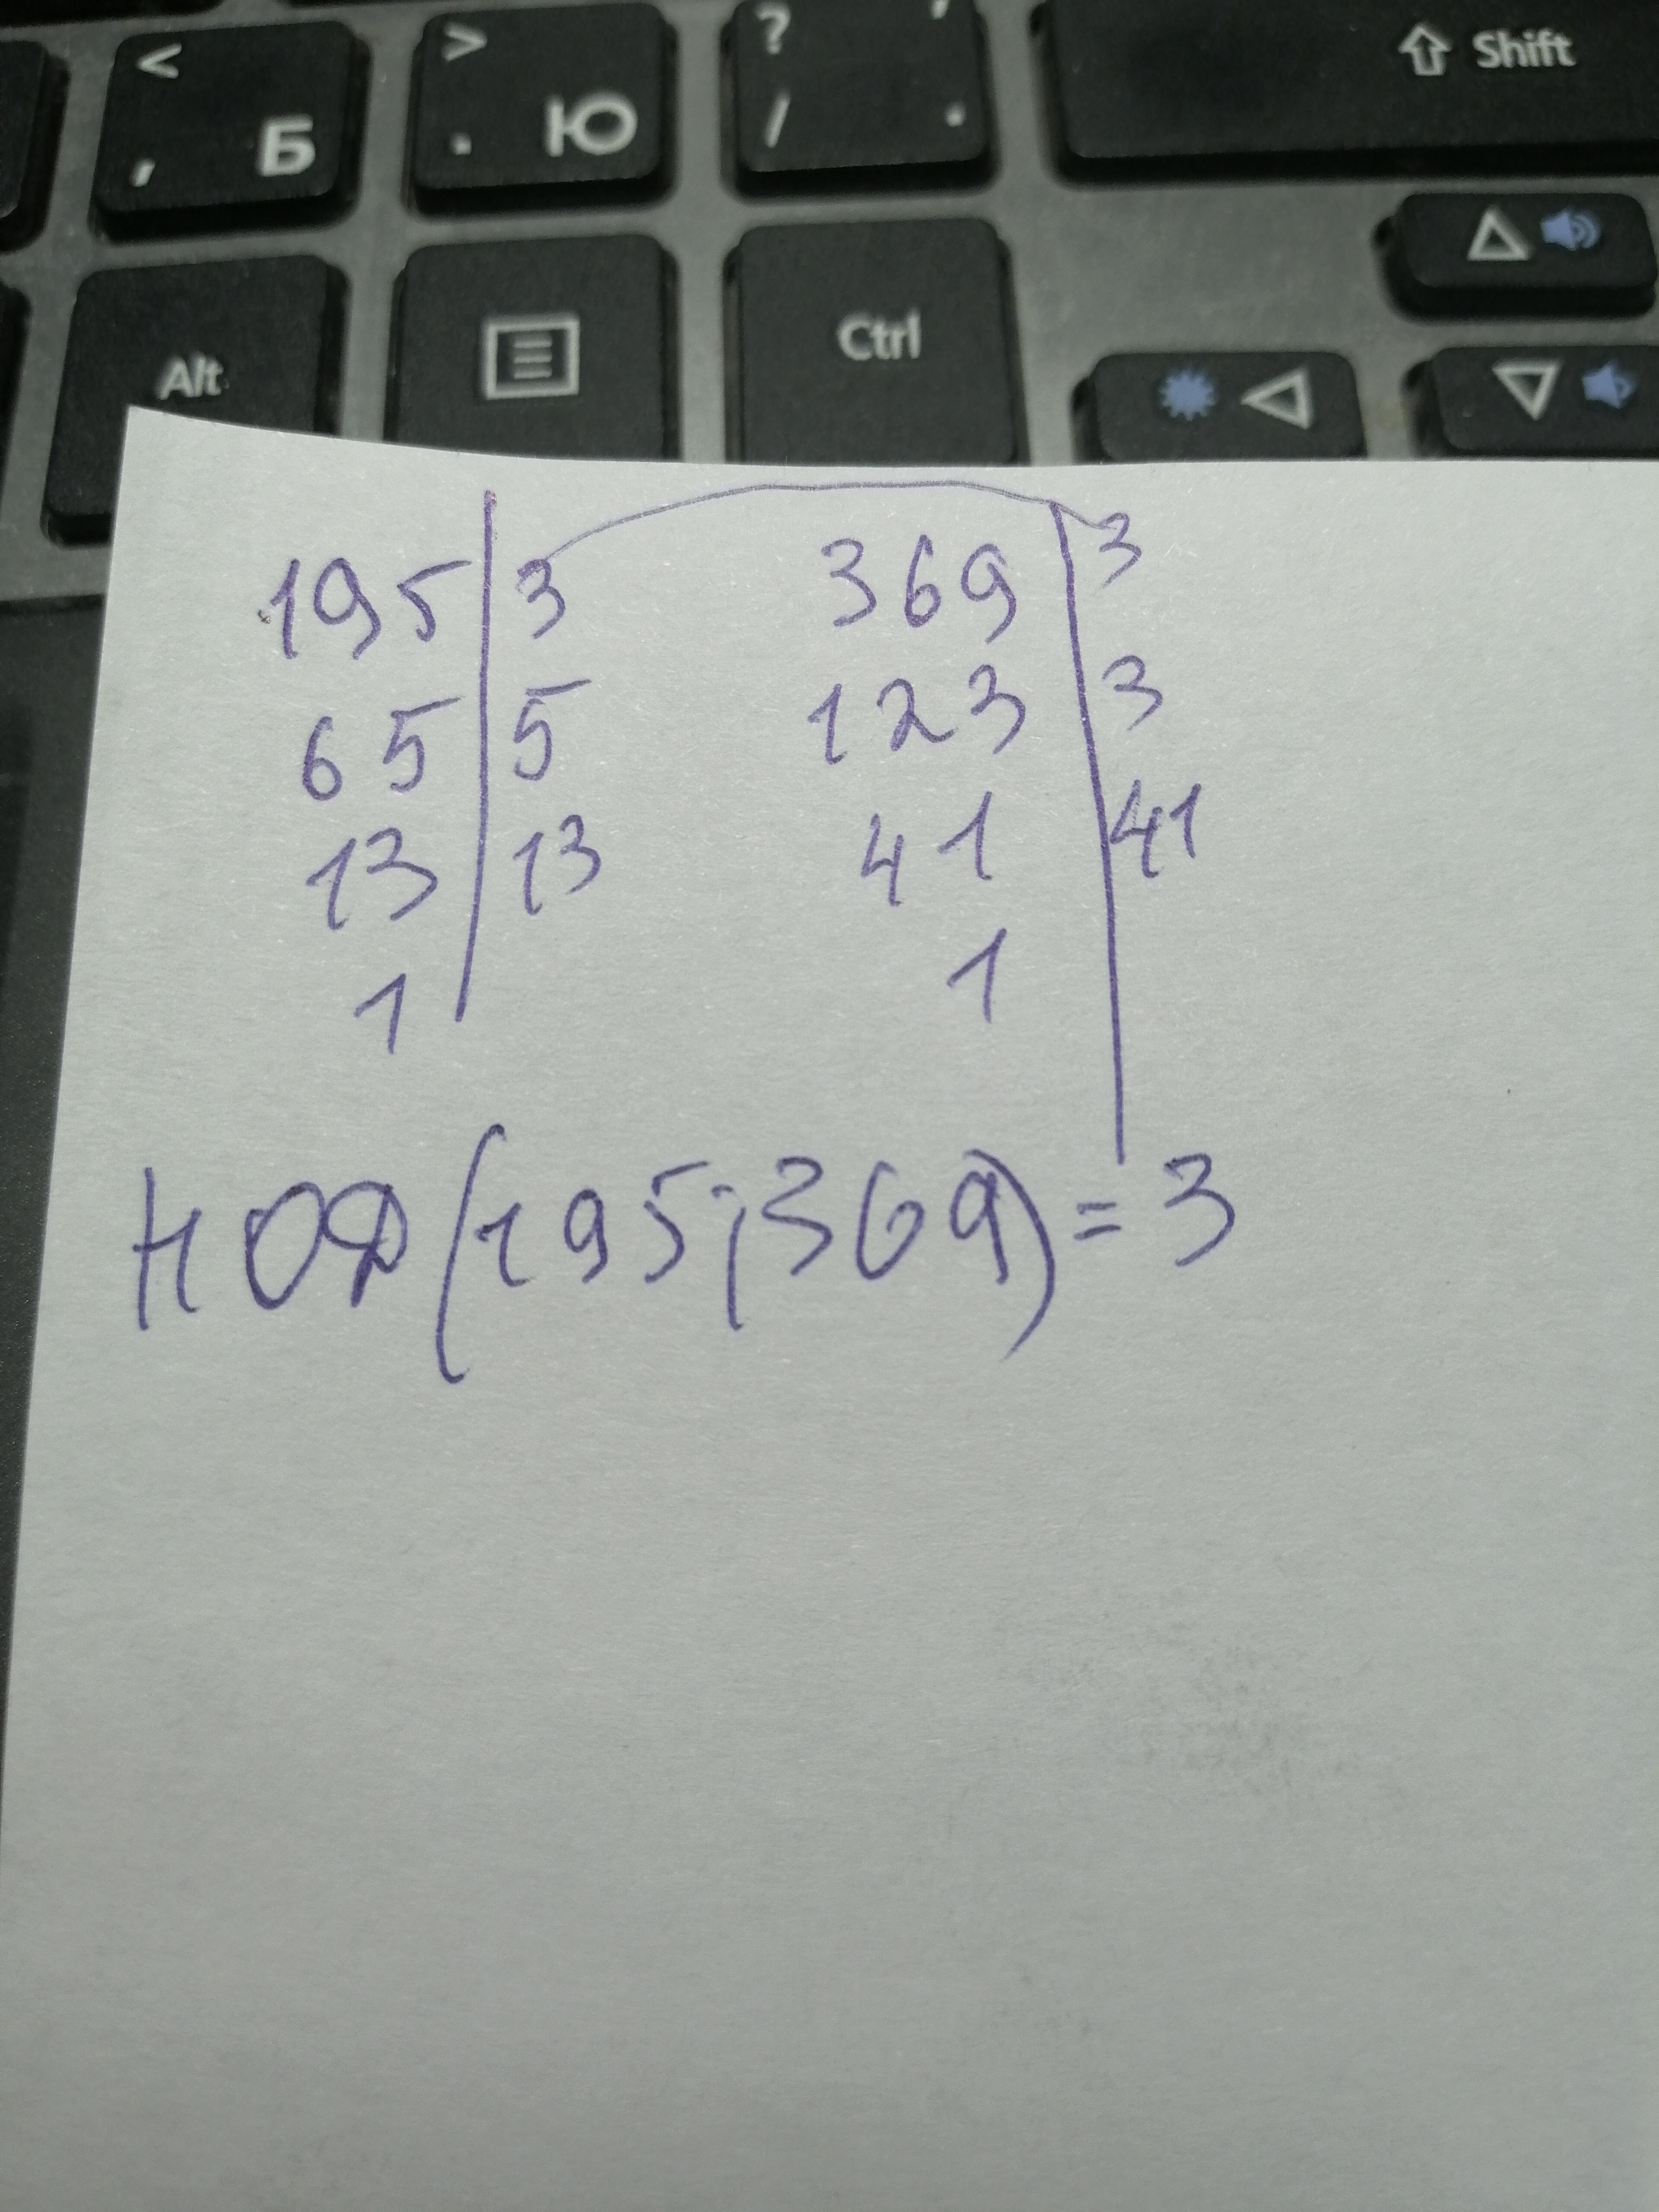 < , Б > . Ю ? / , . Shift
Alt Ctrl
195 | 3 369 | 3
65 | 5 123 | 3
13 | 13 41 | 41
1 1
НОД (195; 369) = 3